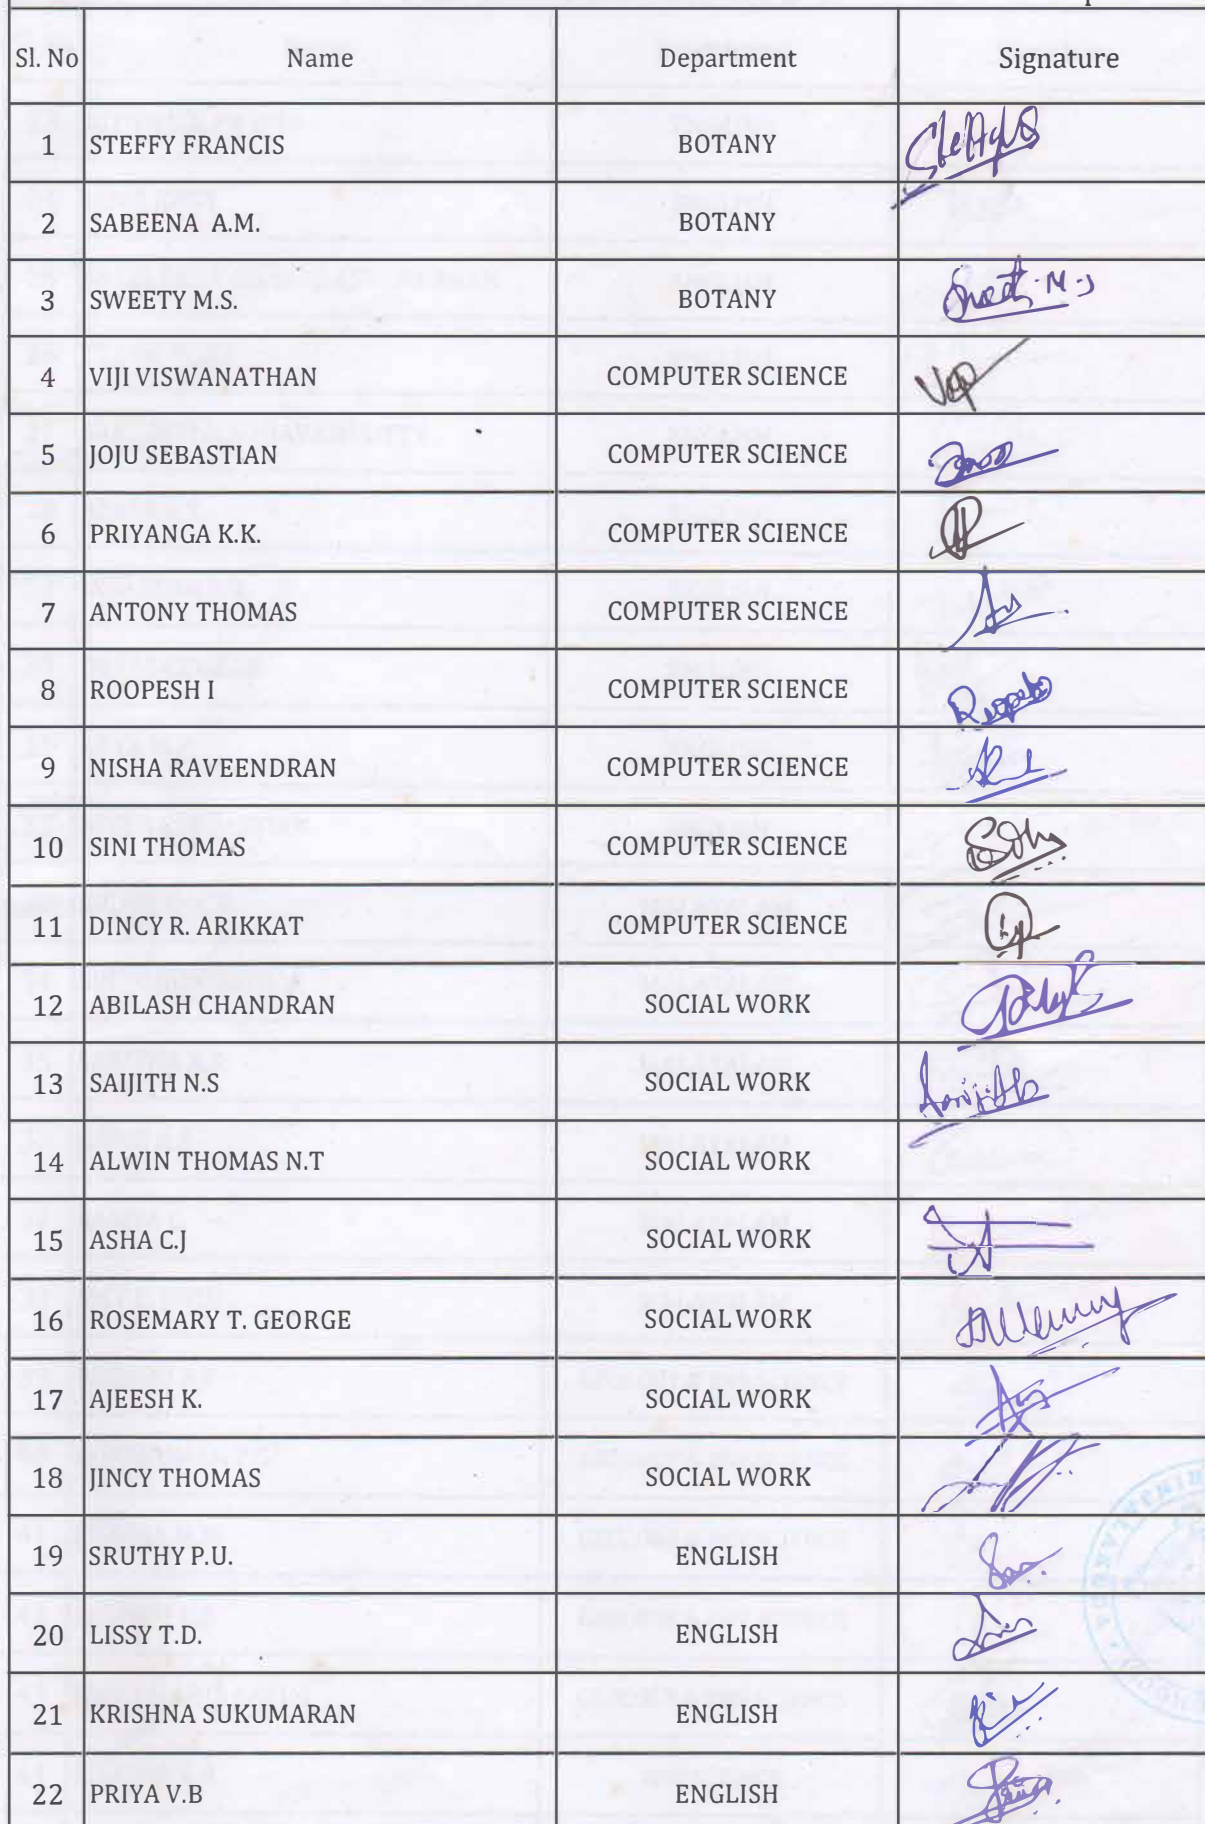 Sl. No Name Department Signature
1 STEFFY FRANCIS BOTANY
2 SABEENA A.M. BOTANY
3 SWEETY M.S. BOTANY
4 VIJI VISWANATHAN COMPUTER SCIENCE
5 JOJU SEBASTIAN COMPUTER SCIENCE
6 PRIYANGA K.K. COMPUTER SCIENCE
7 ANTONY THOMAS COMPUTER SCIENCE
8 ROOPESH I COMPUTER SCIENCE
9 NISHA RAVEENDRAN COMPUTER SCIENCE
10 SINI THOMAS COMPUTER SCIENCE
11 DINCY R. ARIKKAT COMPUTER SCIENCE
12 ABILASH CHANDRAN SOCIAL WORK
13 SAIJITH N.S SOCIAL WORK
14 ALWIN THOMAS N.T SOCIAL WORK
15 ASHA C.J SOCIAL WORK
16 ROSEMARY T. GEORGE SOCIAL WORK
17 AJEESH K. SOCIAL WORK
18 JINCY THOMAS SOCIAL WORK
19 SRUTHY P.U. ENGLISH
20 LISSY T.D. ENGLISH
21 KRISHNA SUKUMARAN ENGLISH
22 PRIYA V.B ENGLISH